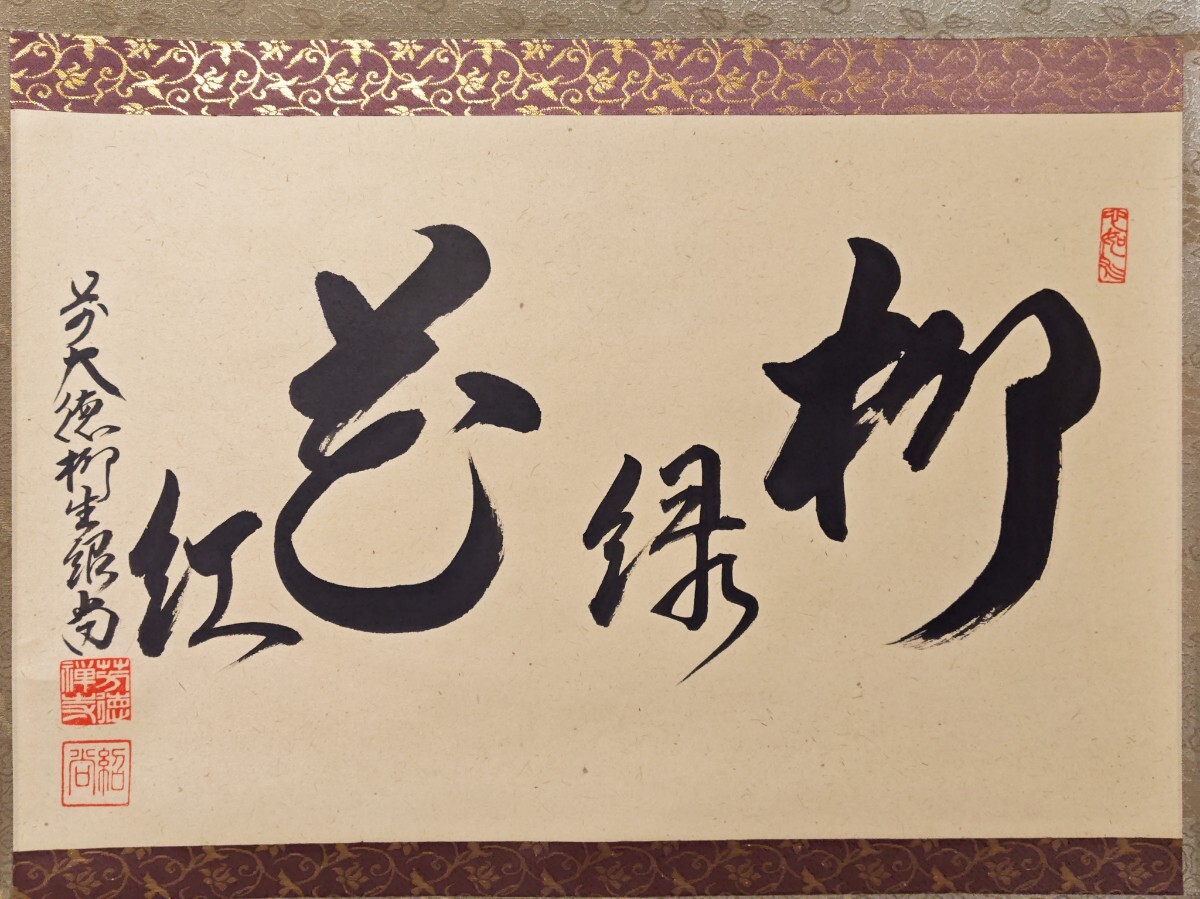 柳緑
花紅
前大徳柳生紹尚
芳徳禅寺
紹尚